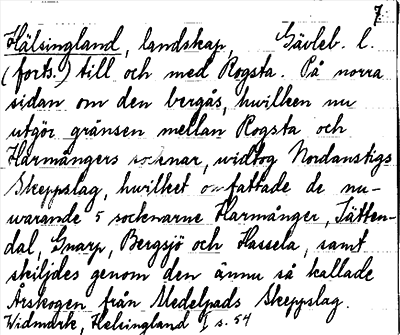 7.
Hälsingland, landskap, Gävleb. l.
(forts.) till och med Rogsta. På norra
sidan om den bergås, hwilken nu
utgör gränsen mellan Rogsta och
Harmångers socknar, widtog Nordanstigs
Skeppslag, hwilket omfattade de nu-
warande 5 socknarne Harmånger, Jätten-
dal, Gnarp, Bergsjö och Hassela, samt
skiljdes genom den ännu så kallade
Årskogen från Medelpads Skeppslag.
Widmark, Helsingland I s. 54